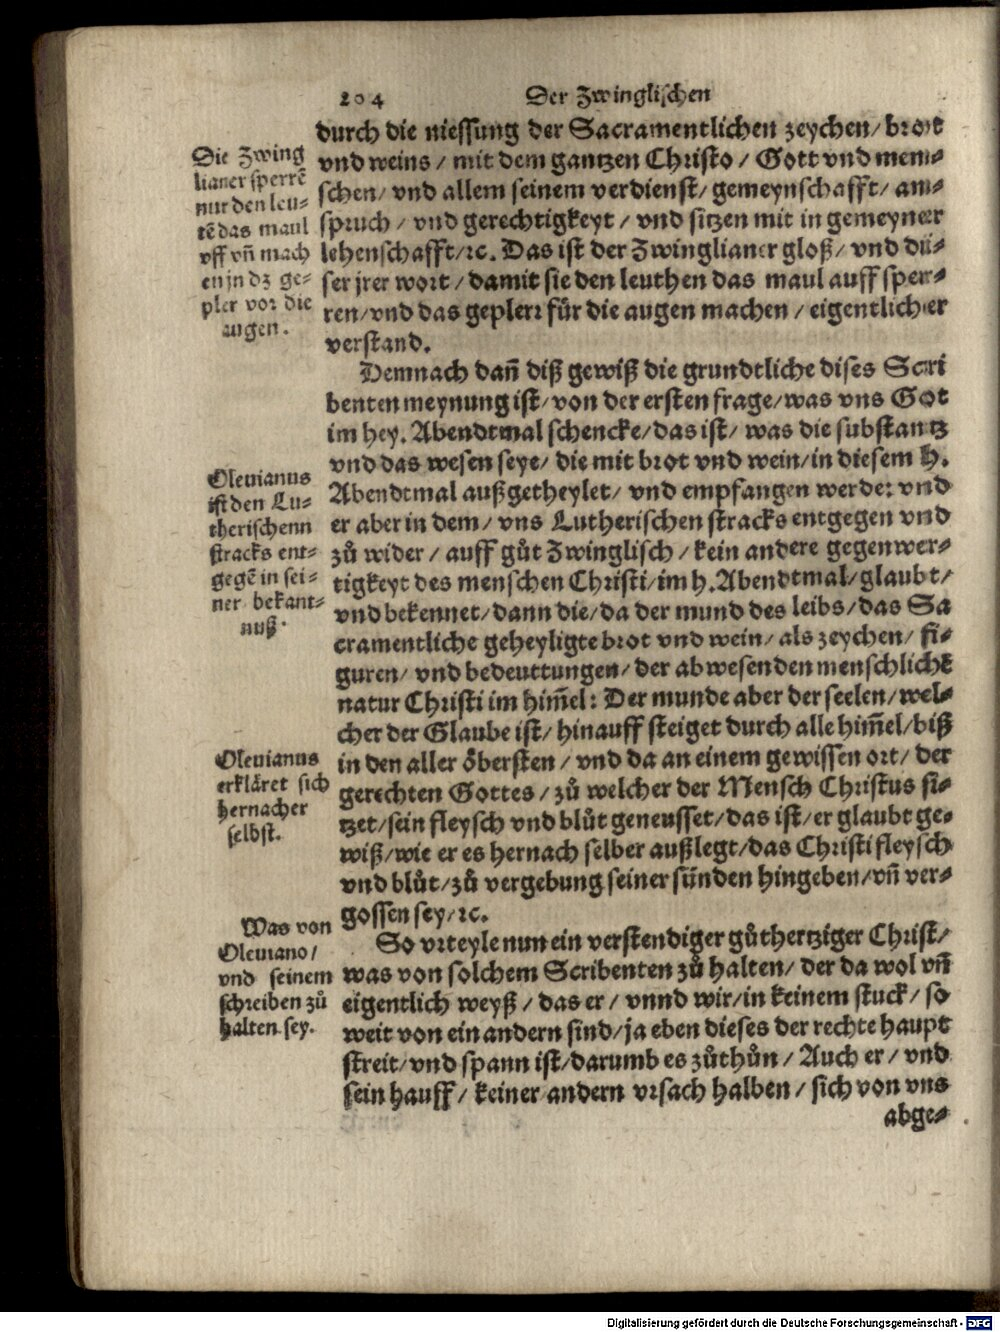 204
Der Zwinglischen
durch die niessung der Sacramentlichen zeychen/ brott
vnd weins / mit dem gantzen Christo / Gott vnd men⸗
schen/ vnd allem seinem verdienst/ gemeynschafft/ an⸗
spruch / vnd gerechtigkeyt / vnd sitzen mit in gemeyner
lehenschafft/ ꝛc. Das ist der Zwinglianer gloß/ vnd di⸗
ser jrer wort / damit sie den leuthen das maul auff sper⸗
ren/ vnd das geplerr für die augen machen / eigentlicher
verstand.
Die Zwing
lianer sperrē
nur den leu⸗
tē das maul
vff vñ mach
en jn dz ge⸗
pler vor die
augen.
Demnach dañ diß gewiß die grundtliche dises Scri
benten meynung ist/ von der ersten frage/ was vns Got
im hey. Abendtmal schencke/ das ist/ was die substantz
vnd das wesen seye/ die mit brot vnd wein/ in diesem H.
Abendtmal außgetheylet/ vnd empfangen werde: vnd
er aber in dem/ vns Lutherischen stracks entgegen vnd
zů wider / auff gůt Zwinglisch / kein andere gegenwer⸗
tigkeyt des menschen Christi/ im h. Abendtmal/ glaubt/
vnd bekennet/ dann die/ da der mund des leibs/ das Sa
cramentliche geheyligte brot vnd wein/ als zeychen/ fi⸗
guren/ vnd bedeuttungen/ der abwesenden menschlichē
natur Christi im him̃el: Der munde aber der seelen/ wel⸗
cher der Glaube ist/ hinauff steiget durch alle him̃el/ biß
in den aller öbersten / vnd da an einem gewissen ort/ der
gerechten Gottes / zů welcher der Mensch Christus si⸗
tzet/ sein fleysch vnd blůt geneusset/ das ist/ er glaubt ge⸗
wiß/ wie er es hernach selber außlegt/ das Christi fleysch
vnd blůt/ zů vergebung seiner sünden hingeben/ vñ ver⸗
gossen sey/ ꝛc.
Oleuianus
ist den Lu⸗
therischenn
stracks ent⸗
gegē in sei⸗
ner bekant⸗
nuß.
Oleuianus
erkläret sich
hernacher
selbst.
So vrteyle nun ein verstendiger gůthertziger Christ/
was von solchem Scribenten zů halten/ der da wol vñ
eigentlich weyß / das er / vnnd wir/ in keinem stuck/ so
weit von ein andern sind/ ja eben dieses der rechte haupt
streit/ vnd spann ist/ darumb es zůthůn / Auch er / vnd
sein hauff / keiner andern vrsach halben / sich von vns
abge⸗
Was von
Oleuiano /
vnd seinem
schreiben zů
halten sey.
Digitalisierung gefördert durch die Deutsche Forschungsgemeinschaft - DFG